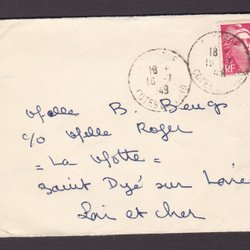 RF
18
15 - 7
49
Melle B. Beugs
c/o Melle Roger
= La Motte =
Saint Dyé sur Loire
Loir et Cher